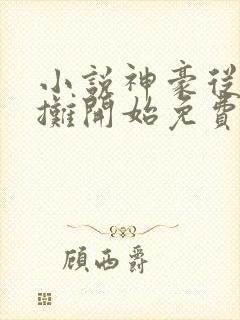 小説神豪從
攤開始免費
顧西爵